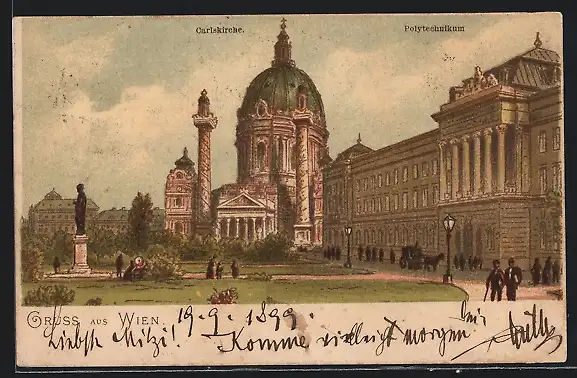 Carlskirche. Polytechnikum
GRUSS AUS WIEN.
19.9.1899.
Liebste Mitzi!
Komme vielleigt morgen.